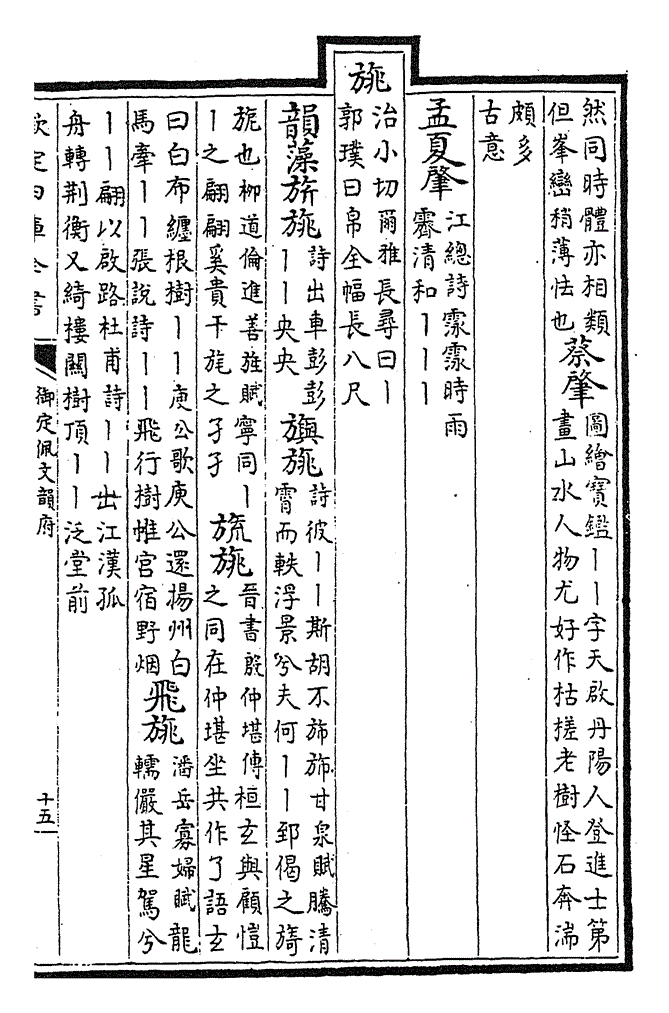 然同時體亦相類
但峯巒稍薄怯也
蔡肇
圖繪寶鑑丨丨字天啟丹陽人登進士第
畫山水人物尤好作枯槎老樹怪石奔湍
頗多
古意
孟夏肇
江總詩霡霂時雨
霽清和丨丨丨
旐
治小切爾雅長尋曰丨
郭璞曰帛全幅長八尺
韻藻旂旐
詩出車彭彭
丨丨央央
旟旐
詩彼丨丨斯胡不斾斾甘泉賦騰清
霄而軼浮景兮夫何丨丨郅偈之旖
旎也柳道倫進善旌賦寧同丨
丨之翩翩奚貴干旄之孑孑
旒旐
晉書殷仲堪傳桓玄與顧愷
之同在仲堪坐共作了語玄
曰白布纒根樹丨丨庾公歌庾公還揚州白
馬牽丨丨張說詩丨丨飛行樹帷宮宿野烟
飛旐
潘岳寡婦賦龍
轜儼其星駕兮
丨丨翩以啟路杜甫詩丨丨出江漢孤
舟轉荆衡又綺樓關樹頂丨丨泛堂前
欽定四庫全書
御定佩文韻府
十五